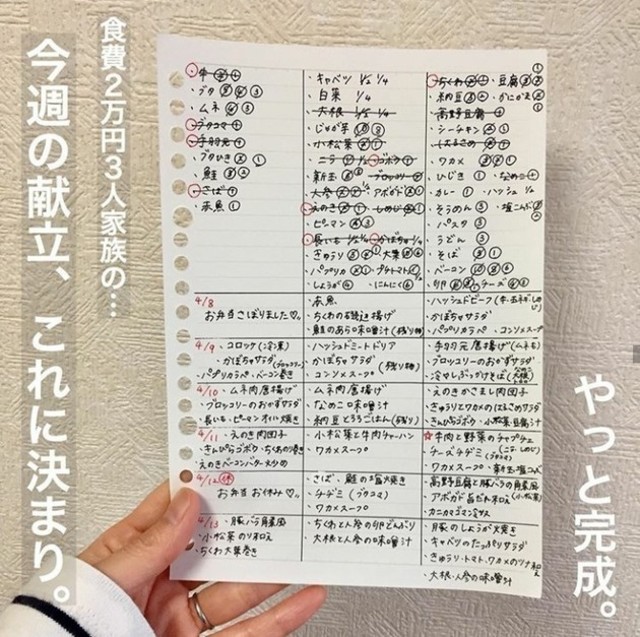 食費2万円3人家族の…
今週の献立、これに決まり。
やっと完成。
・ムネ
・ブタコマ
・手羽元
・ブタひき
・鮭
・さば
・赤魚
・キャベツ
・白菜 1/4
・大根
・じゃが芋
・小松菜
・ニラ ・ゴボウ
・新玉 ・ブロッコリー
・大葱 ・アボガド
・えのき ・しめじ
・ピーマン
・長いも ・かぼちゃ 1/4
・きゅうり ・大葉
・パプリカ ・プチトマト
・しょうが ・にんにく
・ちくわ ・豆腐
・納豆 ・かにかま
・高野豆腐
・シーチキン
・はるさめ
・ワカメ
・ひじき ・なめこ
・カレー ・ハッシュ 1/2
・そうめん ・塩こんぶ
・パスタ
・うどん
・そば
・ベーコン
・卵 ・チーズ
4/8
お弁当さぼりました♡。
・赤魚
・ちくわの磯辺揚げ
・鮭のあら味噌汁(残り物)
・ハッシュドビーフ
・かぼちゃサラダ
・パプリカラペ ・コンソメスープ
4/9 ・コロッケ(冷凍)
・かぼちゃサラダ
・パプリカラペ ・ベーコン巻き
・ハッシュドミートドリア
・かぼちゃサラダ
・コンソメスープ
(残り物)
・手羽元唐揚げ(ムネも)
・ブロッコリーのおかずサラダ
・冷やしぶっかけそば
4/10 ・ムネ肉唐揚げ
・ブロッコリーのおかずサラダ
・長いも・ピーマンオイル焼き
・ムネ肉唐揚げ
・なめこ味噌汁
・納豆とろろごはん(残り)
・えのきかさまし肉団子
・きゅうりとワカメのはるさめサラダ
・きんぴらゴボウ ・小松菜豆腐汁
4/11 ・えのき肉団子
・きんぴらゴボウ ・ちくわの磯き
・えのきベーコンバター火少め
・小松菜と牛肉チャーハン
・ワカメスープ
☆牛肉と野菜のチャプチェ
・チーズチヂミ
・ワカメスープ ・新玉塩こんぶ
4/12 ㊡
お弁当お休み♡。
・さば、鮭の塩焼き
・チヂミ(ブタコマ)
・ワカメスープ
・高野豆腐と豚バラの角煮風
・アボガド旨だれ和え
・カニカマゴママヨ
4/13 ・豚バラ角煮風
・小松菜のり和え
・ちくわ大葉巻き
・ちくわと人参の卵どんぶり
・大根と人参の味噌汁
・豚のしょうが焼き
・キャベツのたっぷりサラダ
・きゅうり・トマト・ワカメのツナ和え
・大根・人参の味噌汁